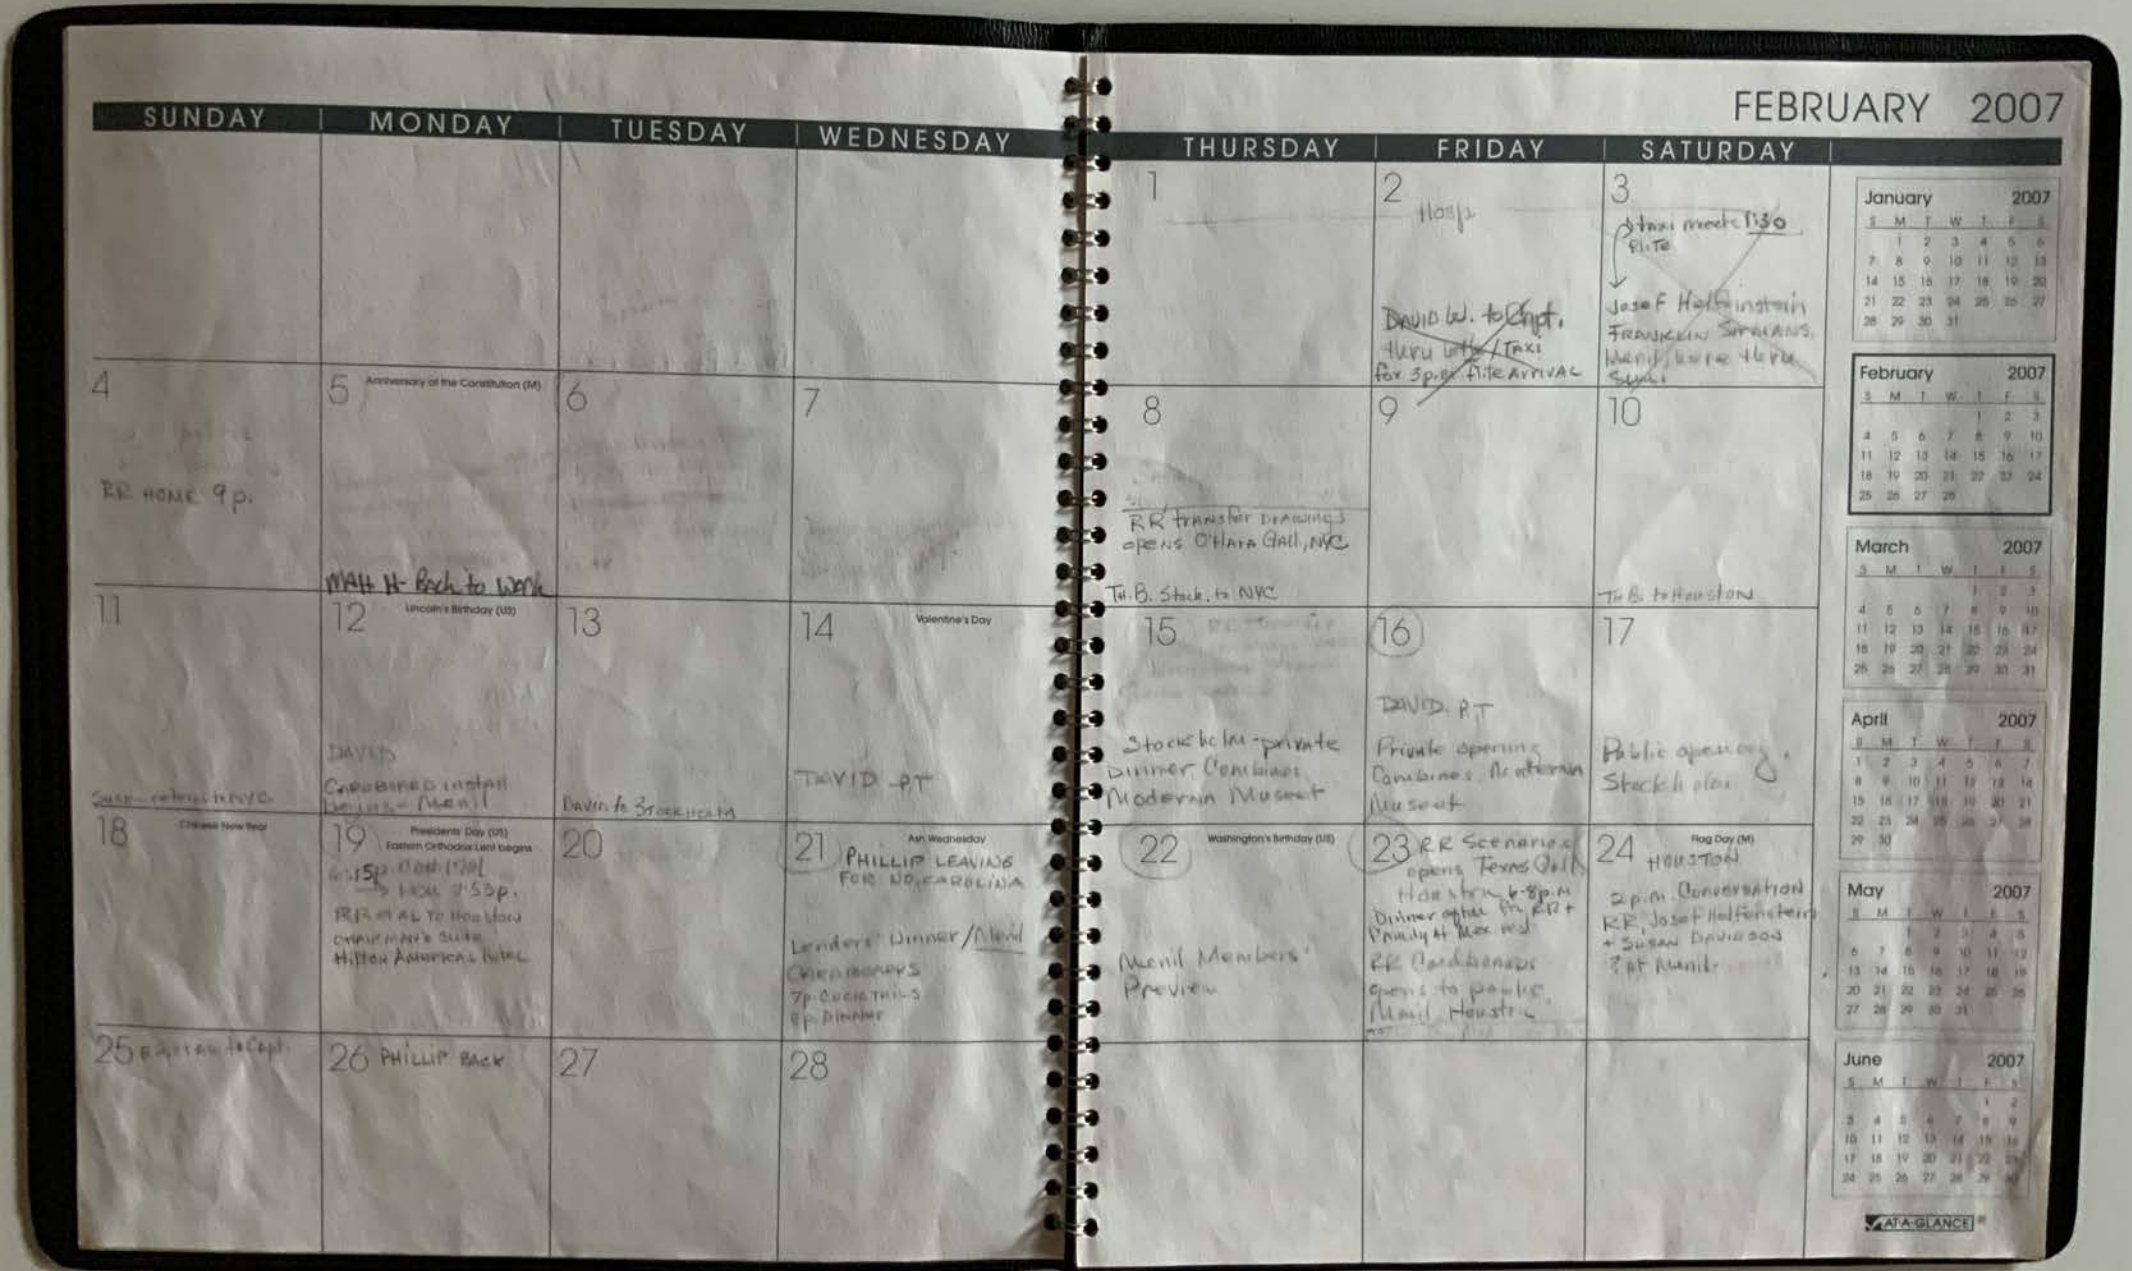 FEBRUARY 2007
SUNDAY MONDAY TUESDAY WEDNESDAY THURSDAY FRIDAY SATURDAY
1
2
Hosp
DAVID W. to Capt.
thru / TAXI
for 3p.m. flite ARRIVAL
3
taxi meets 1:30
flite
Josef Helfenstein
FRANKLIN SIRMANS
Menil, here thru
4
RR HOME 9p.
5 Anniversary of the Constitution (M)
MATT H- Back to Work
6
7
8
RR transfer DRAWINGS
opens O'HARA Gall, NYC
TH.B. Stock. to NYC
9
10
TH B. to Houston
11
12 Lincoln's Birthday (US)
DAVID
CARDBOARD install
begins - Menil
13
DAVID to STOCKHOLM
14 Valentine's Day
DAVID PT
15
Stockholm-private
DINNER, Combines
Moderna Museet
16
DAVID. PT
Private opening
Combines Moderna
Museet
17
Public opening
Stockholm
18 Chinese New Year
19 Presidents' Day (US)
Eastern Orthodox Lent begins
RR et AL To Houston
CHAIRMAN'S Suite
Hilton Americas Hotel
20
21 Ash Wednesday
PHILLIP LEAVING
FOR NO. CAROLINA
Lenders' Dinner/Menil
CARDBOARDS
7p. COCKTAILS
8p. DINNER
22 Washington's Birthday (US)
Menil Members'
Preview
23 RR Scenarios
opens Texas Gall
Houston 6-8p.m
Dinner after RR +
Family at Mex. rest
RR Cardboards
opens to public,
Menil Houston
24 Flag Day (M)
HOUSTON
2p.m. Conversation
RR, Josef Helfenstein
+ SUSAN DAVIDSON
? at Menil-
25 to Capt.
26 PHILLIP BACK
27
28
January 2007
S M T W T F S
1 2 3 4 5 6
7 8 9 10 11 12 13
14 15 16 17 18 19 20
21 22 23 24 25 26 27
28 29 30 31
February 2007
S M T W T F S
1 2 3
4 5 6 7 8 9 10
11 12 13 14 15 16 17
18 19 20 21 22 23 24
25 26 27 28
March 2007
S M T W T F S
1 2 3
4 5 6 7 8 9 10
11 12 13 14 15 16 17
18 19 20 21 22 23 24
25 26 27 28 29 30 31
April 2007
S M T W T F S
1 2 3 4 5 6 7
8 9 10 11 12 13 14
15 16 17 18 19 20 21
22 23 24 25 26 27 28
29 30
May 2007
S M T W T F S
1 2 3 4 5
6 7 8 9 10 11 12
13 14 15 16 17 18 19
20 21 22 23 24 25 26
27 28 29 30 31
June 2007
S M T W T F S
1 2
3 4 5 6 7 8 9
10 11 12 13 14 15 16
17 18 19 20 21 22 23
24 25 26 27 28 29 30
AT-A-GLANCE